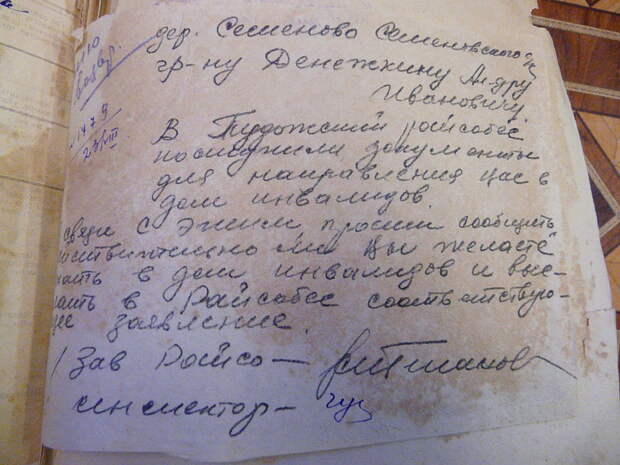 дер. Семеново Семеновского с/с
гр-ну Денежкину Ал-дру
Ивановичу.
№ 1479
23/VIII
В Пудожский райсобес
поступили документы
для направления Вас в
дом инвалидов.
связи с этим просим сообщить
йствительно ли Вы желаете
пать в дом инвалидов и выс-
лать в Райсобес соответствую-
щее заявление.
Зав Райсо —
инспектор —